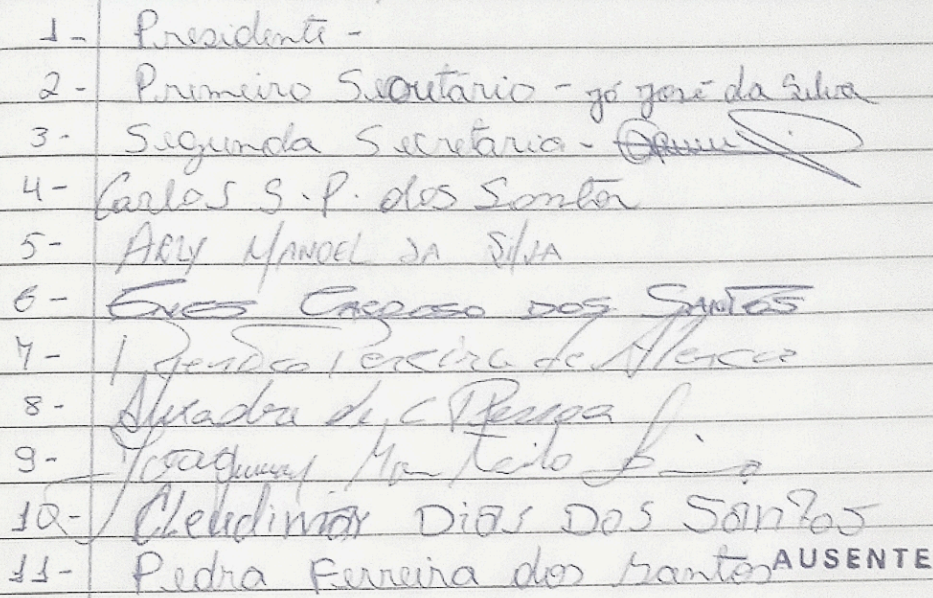 1- Presidente -
2- Primeiro Secretário - jó josé da Silva
3- Segunda Secretária -
4- Carlos S. P. dos Santos
5- ARLY MANOEL DA SILVA
6- CARDOSO DOS SANTOS
7- Pereira de Alencar
8- de C Pessoa
9-
10- Cleudimar DIAS DOS SANTOS
11- Pedra Ferreira dos Santos AUSENTE